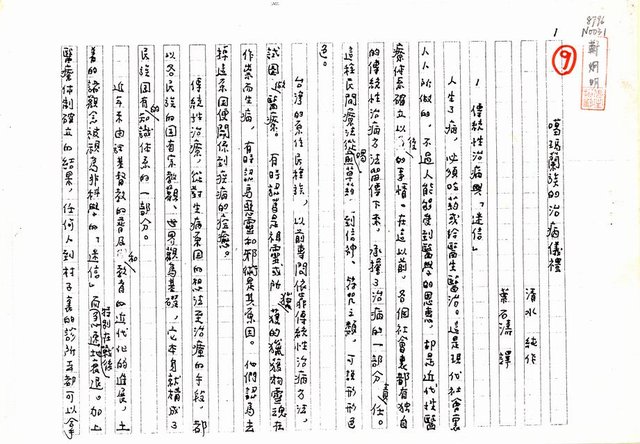 8796
N0031
1
9
鄭烱明
噶瑪蘭族的治病儀禮
清水 純作
葉石濤 譯
1 傳統性治病與「迷信」
人生了病,必須吃葯或給醫生醫治。這是現代社會裏
人人所做的,不過人人能夠受到醫學的恩惠,卻是近代性醫
療体系確立以後的事情。在這以前,各個社會裏都有獨自
的傳統性治病方法留傳下來,承擔了治病的一部分責任。
這種民間療法從喝煎草葯,到信神、符咒之類,可說形形色
色。
台灣的原住民種族,以前專門依靠傳統性治病方法,
試圖做醫療。有時認為是祖靈或所獵獲的獵獲物靈魂在
作祟而生病,有時認為惡靈和邪術是其原因。他們認為去
掉這原因便關係到疾病的痊癒。
傳統性治療,從對生病原因的想法至治療的手段,都
以各民族的固有宗教觀、世界觀為基礎,它本身就構成了
民族固有的知識体系的一部分。
近年來由於基督教的普及和教育的近代化的進展,土
著的諸觀念被視為非科學的「迷信」而特別在戰後急速地衰退。加上
醫療体制確立的結果,任何人到村子裏的診所去都可以拿